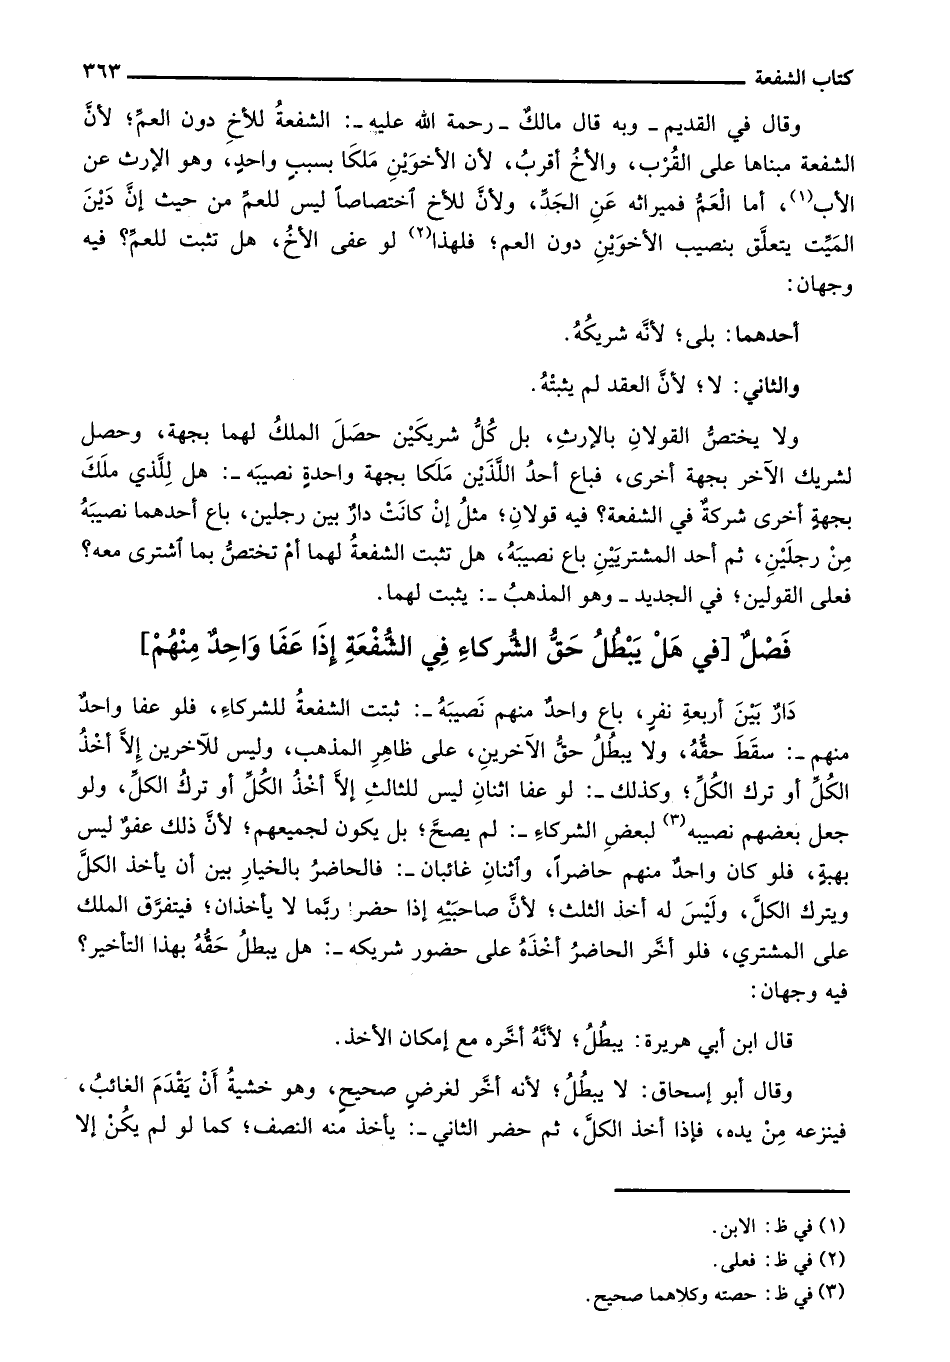 كتاب الشفعة ٣٦٣
وقال في القديم ـ وبه قال مالكٌ ـ رحمة الله عليه ـ: الشفعةُ للأخِ دون العمِّ؛ لأنَّ
الشفعة مبناها على القُرْب، والأخُ أقربُ، لأن الأخوَيْنِ مَلَكَا بسببٍ واحدٍ، وهو الإرث عن
الأب(١)، أما الْعَمُّ فميراثه عَنِ الجَدِّ، ولأنَّ للأخ اختصاصاً ليس للعمِّ من حيث إنَّ دَيْنَ
المَيِّت يتعلَّق بنصيب الأخوَيْنِ دون العم؛ فلهذا(٢) لو عفى الأخُ، هل تثبت للعمِّ؟ فيه
وجهان:
أحدهما: بلى؛ لأنَّه شريكُهُ.
والثاني: لا؛ لأنَّ العقد لم يثبتْهُ.
ولا يختصُّ القولانِ بالإرثِ، بل كُلُّ شريكَيْن حصَلَ الملكُ لهما بجهة، وحصل
لشريك الآخر بجهة أخرى، فباع أحدُ اللَّذَيْن مَلَكا بجهة واحدةٍ نصيبَه ـ: هل لِلَّذي ملَكَ
بجهةٍ أخرى شركةٌ في الشفعة؟ فيه قولانِ؛ مثلُ إنْ كانَتْ دارٌ بين رجلين، باع أحدهما نصيبَهُ
مِنْ رجلَيْنِ، ثم أحد المشتريَيْنِ باع نصيبَهُ، هل تثبت الشفعةُ لهما أمْ تختصُّ بما اشترى معه؟
فعلى القولين؛ في الجديد ـ وهو المذهبُ ـ: يثبت لهما.
فَصْلٌ [في هَلْ يَبْطُلُ حَقُّ الشُّركاءِ فِي الشُّفْعَةِ إِذَا عَفَا وَاحِدٌ مِنْهُمْ]
دَارٌ بَيْنَ أربعةِ نفرٍ، باع واحدٌ منهم نَصيبَهُ ـ: ثبتت الشفعةُ للشركاءِ، فلو عفا واحدٌ
منهم ـ: سقَطَ حقُّهُ، ولا يبطُلُ حقُّ الآخرينِ، على ظاهِرِ المذهب، وليس للآخرين إلاَّ أخْذُ
الكُلِّ أو ترك الكُلِّ؛ وكذلك ـ: لو عفا اثنانِ ليس للثالثِ إلاَّ أخْذُ الكُلِّ أو تركُ الكلِّ، ولو
جعل بعضهم نصيبه(٣) لبعضِ الشركاءِ ـ: لم يصحَّ؛ بل يكون لجميعهم؛ لأنَّ ذلك عفوٌ ليس
بهبةٍ، فلو كان واحدٌ منهم حاضراً، واثنانِ غائبان ـ: فالحاضرُ بالخيارِ بين أن يأخذ الكلَّ
ويترك الكلَّ، ولَيْسَ له أخذ الثلث؛ لأنَّ صاحبَيْهِ إذا حضر ربَّما لا يأخذان؛ فيتفرَّق الملك
على المشتري، فلو أخَّر الحاضرُ أخْذَهُ على حضور شريكه ـ: هل يبطلُ حَقُّهُ بهذا التأخير؟
فيه وجهان:
قال ابن أبي هريرة: يبطُلُ؛ لأنَّهُ أخَّره مع إمكان الأخذ.
وقال أبو إسحاق: لا يبطُلُ؛ لأنه أخَّر لغرضٍ صحيحٍ، وهو خشيةُ أنْ يَقْدَمَ الغائبُ،
فينزعه مِنْ يده، فإذا أخذ الكلَّ، ثم حضر الثاني ـ: يأخذ منه النصف؛ كما لو لم يكُنْ إلا
(١) في ظ: الابن.
(٢) في ظ: فعلى.
(٣) في ظ: حصته وكلاهما صحيح.